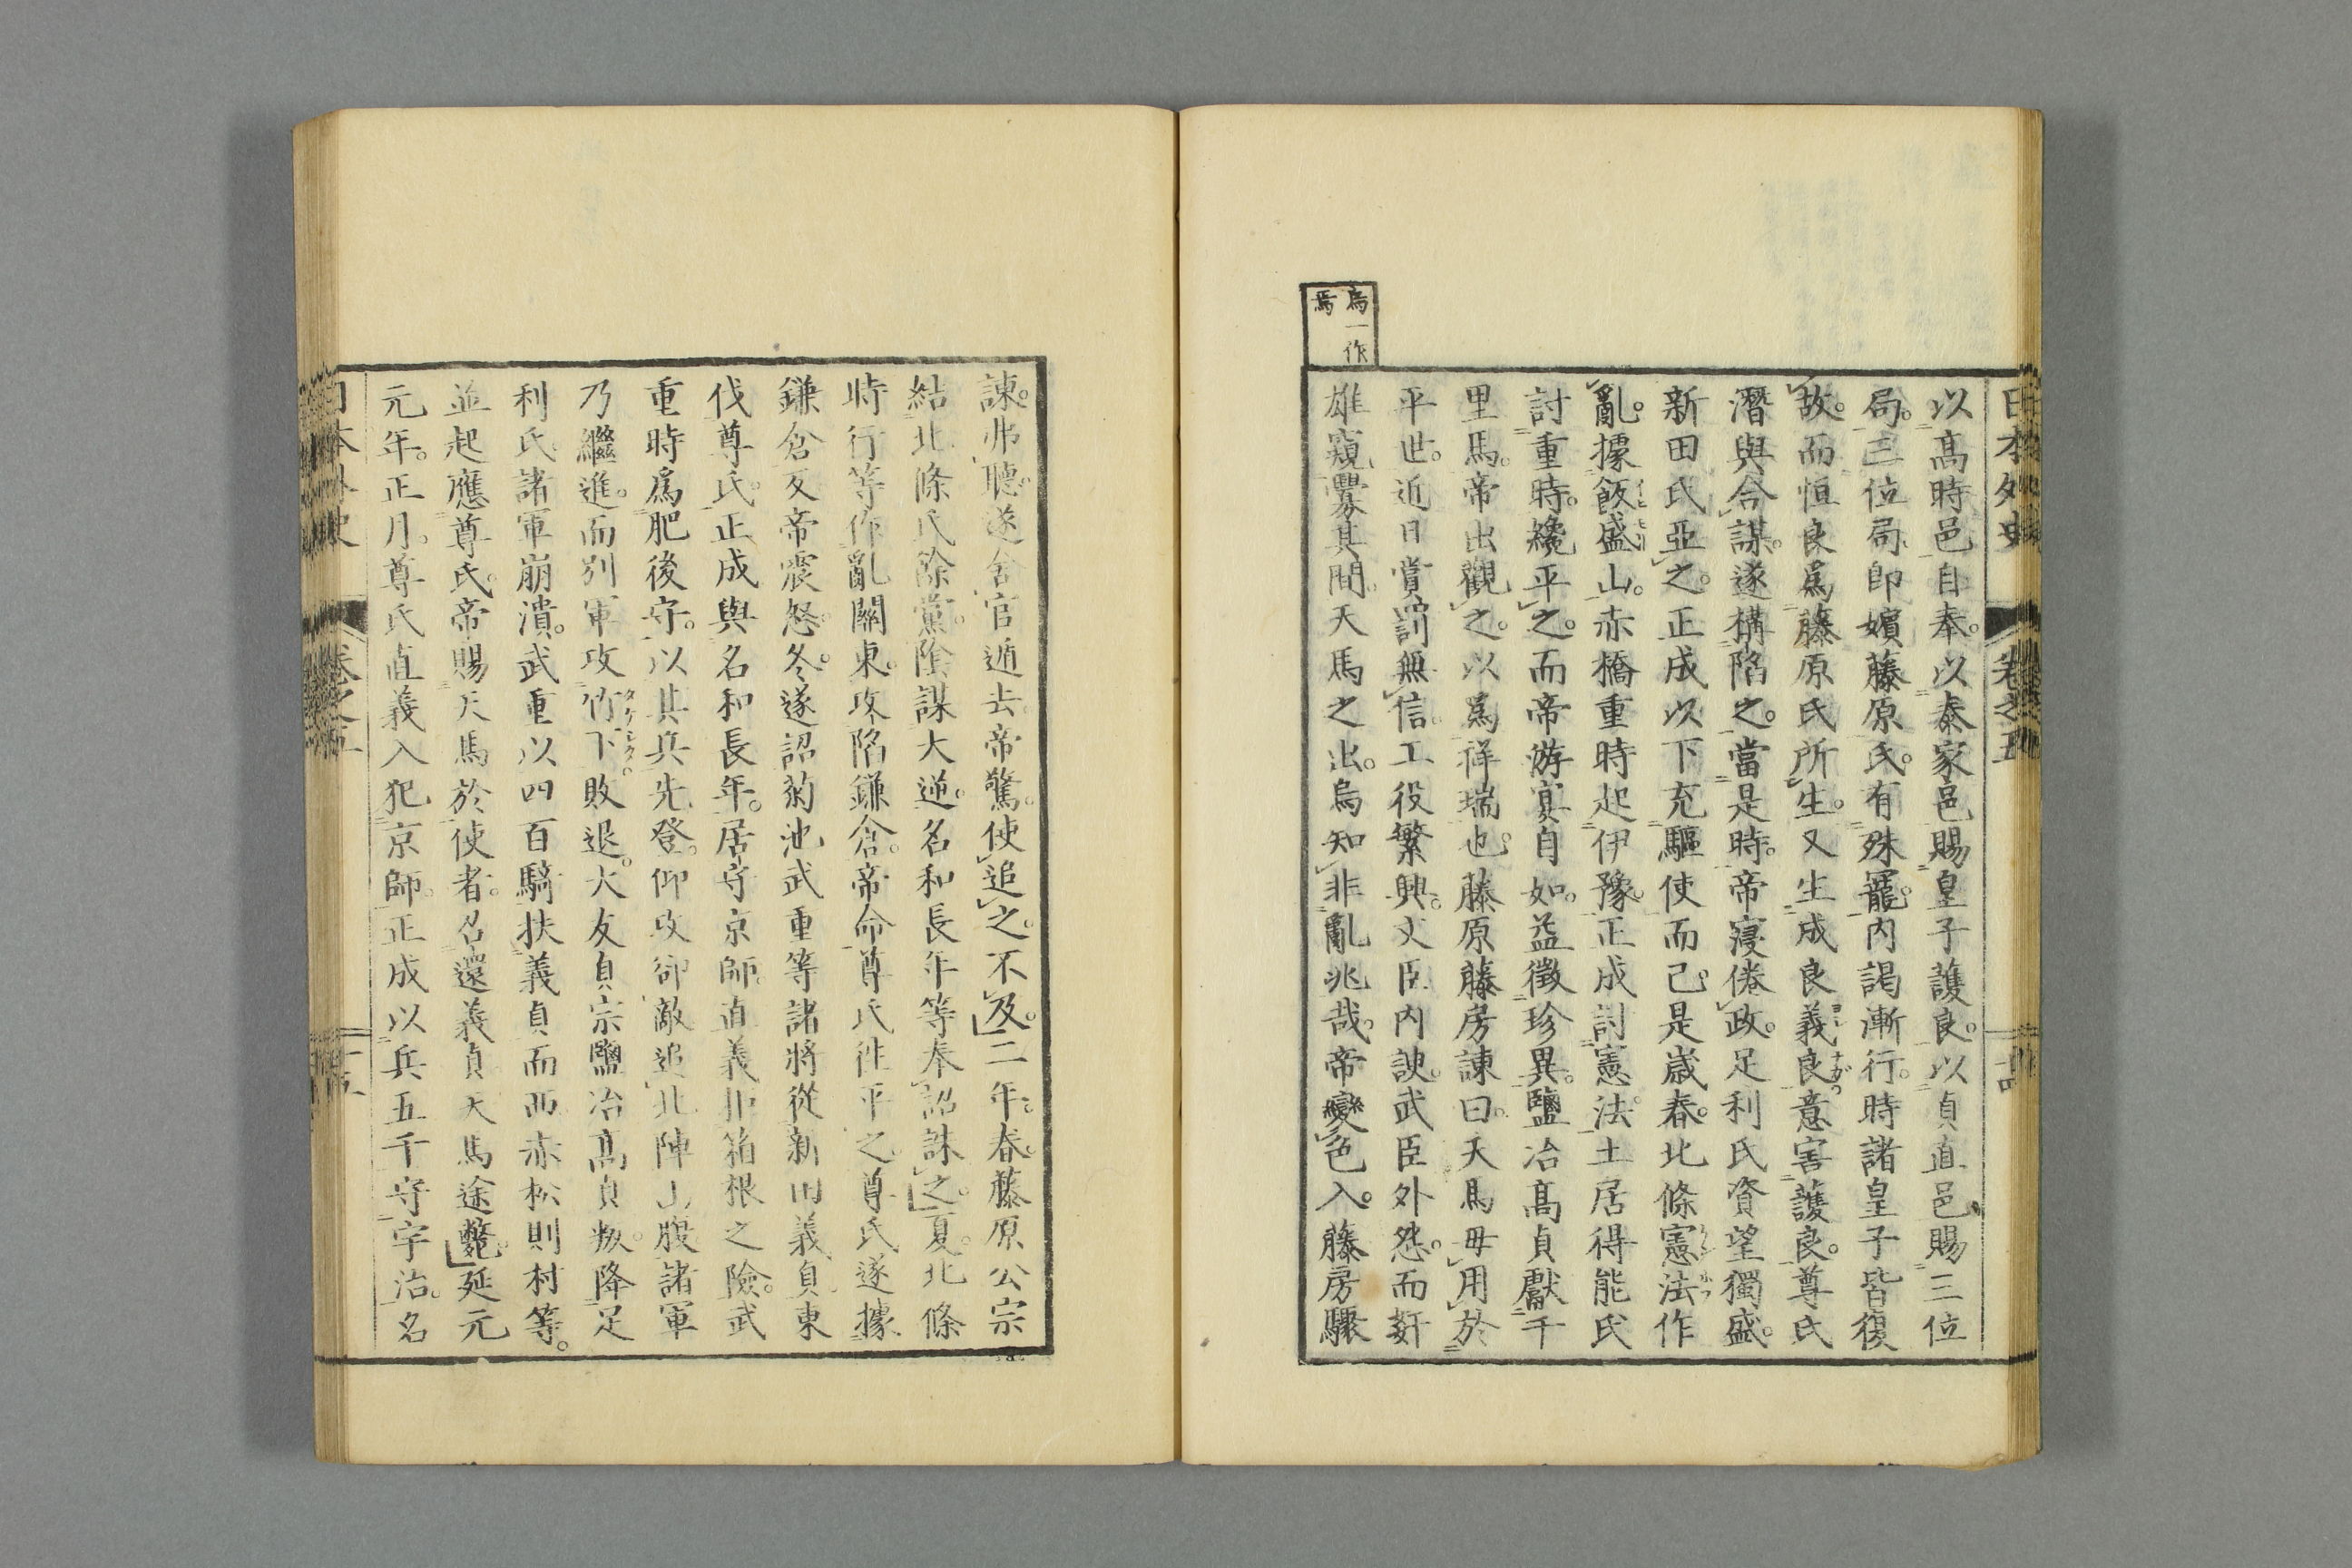 日本外史
卷之五
以高時邑自奉。以泰家邑賜皇子護良。以貞直邑賜三位
局。三位局卽嬪藤原氏。有殊寵。内謁漸行。時諸皇子皆復
故。而恒良爲藤原氏所生。又生成良義良。意害護良。尊氏
ヨシナガヲ
潛與合謀。遂構陷之。當是時。帝寖倦政。足利氏資望獨盛。
新田氏亞之。正成以下充驅使而已。是歲春。北條憲法作
亂。據飯盛山。赤橋重時起伊豫。正成討憲法。土居得能氏
討重時。纔平之。而帝游宴自如。益徵珍異。鹽冶高貞獻千
里馬。帝出觀之。以爲祥瑞也。藤原藤房諫曰。天馬毋用於
平世。近日賞罰無信。工役繁興。文臣内諛。武臣外怨。而姧
雄窺釁其間。天馬之出。烏知非亂兆哉。帝變色入。藤房驟
烏一作
焉
諫。弗聽。遂舍官遁去。帝驚。使追之。不及。二年。春。藤原公宗
結北條氏餘黨。陰謀大逆。名和長年等奉詔誅之。夏。北條
時行等作亂關東。攻陷鎌倉。帝命尊氏往平之。尊氏遂據
鎌倉反。帝震怒。冬。遂詔菊池武重等諸將從新田義貞東
伐尊氏。正成與名和長年。居守京師。直義拒箱根之險。武
重時爲肥後守。以其兵先登。仰攻卻敵。追北陣山腹。諸軍
乃繼進。而別軍攻竹下敗退。大友貞宗鹽冶高貞叛。降足
タケノシタ
利氏。諸軍崩潰。武重以四百騎扶義貞而西。赤松則村等。
並起應尊氏。帝賜天馬於使者。召還義貞。天馬途斃。延元
元年。正月。尊氏直義入犯京師。正成以兵五千守宇治。名
日本外史
卷之五